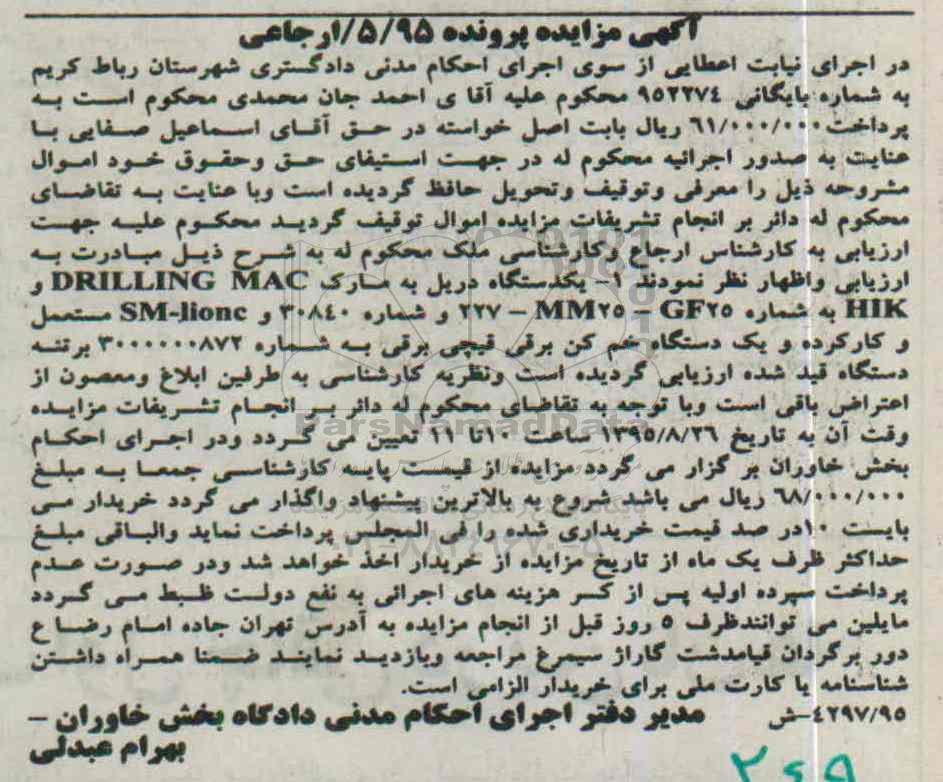 آگهی مزایده پرونده ۵/۹۵/ارجاعی
در اجرای نیابت اعطایی از سوی اجرای احکام مدنی دادگستری شهرستان رباط کریم
به شماره بایگانی ۹۵۲۲۷۴ محکوم علیه آقا ی احمد جان محمدی محکوم است به
پرداخت ۶۱/۰۰۰/۰۰۰ ریال بابت اصل خواسته در حق آقای اسماعیل صفایی با
عنایت به صدور اجرائیه محکوم له در جهت استیفای حق وحقوق خود اموال
مشروحه ذیل را معرفی وتوقیف وتحویل حافظ گردیده است وبا عنایت به تقاضای
محکوم له دائر بر انجام تشریفات مزایده اموال توقیف گردید محکوم علیه جهت
ارزیابی به کارشناس ارجاع وکارشناسی ملک محکوم له به شرح ذیل مبادرت به
ارزیابی واظهار نظر نمودند ۱- یکدستگاه دریل به مارک DRILLING MAC و
HIK به شماره GF۲۵ – MM۲۵ – ۲۲۷ و شماره ۳۰۸۴۰ و SM-lionc مستعمل
و کارکرده و یک دستگاه خم کن برقی قیچی برقی به شماره ۳۰۰۰۰۰۰۸۷۲ برتنه
دستگاه قید شده ارزیابی گردیده است ونظریه کارشناسی به طرفین ابلاغ ومعصون از
اعتراض باقی است وبا توجه به تقاضای محکوم له دائر بر انجام تشریفات مزایده
وقت آن به تاریخ ۱۳۹۵/۸/۲۶ ساعت ۱۰تا ۱۱ تعیین می گردد ودر اجرای احکام
بخش خاوران بر گزار می گردد مزایده از قیمت پایه کارشناسی جمعا به مبلغ
۶۸/۰۰۰/۰۰۰ ریال می باشد شروع به بالاترین پیشنهاد واگذار می گردد خریدار می
بایست ۱۰در صد قیمت خریداری شده را فی المجلس پرداخت نماید والباقی مبلغ
حداکثر ظرف یک ماه از تاریخ مزایده از خریدار اخذ خواهد شد ودر صورت عدم
پرداخت سپرده اولیه پس از کسر هزینه های اجرائی به نفع دولت ظبط می گردد
مایلین می توانندظرف ۵ روز قبل از انجام مزایده به آدرس تهران جاده امام رضا ع
دور برگردان قیامدشت گاراژ سیمرغ مراجعه وبازدید نمایند ضمنا همراه داشتن
شناسنامه یا کارت ملی برای خریدار الزامی است.
۴۲۹۷/۹۵-ش مدیر دفتر اجرای احکام مدنی دادگاه بخش خاوران –
بهرام عبدلی
ParsNamadData